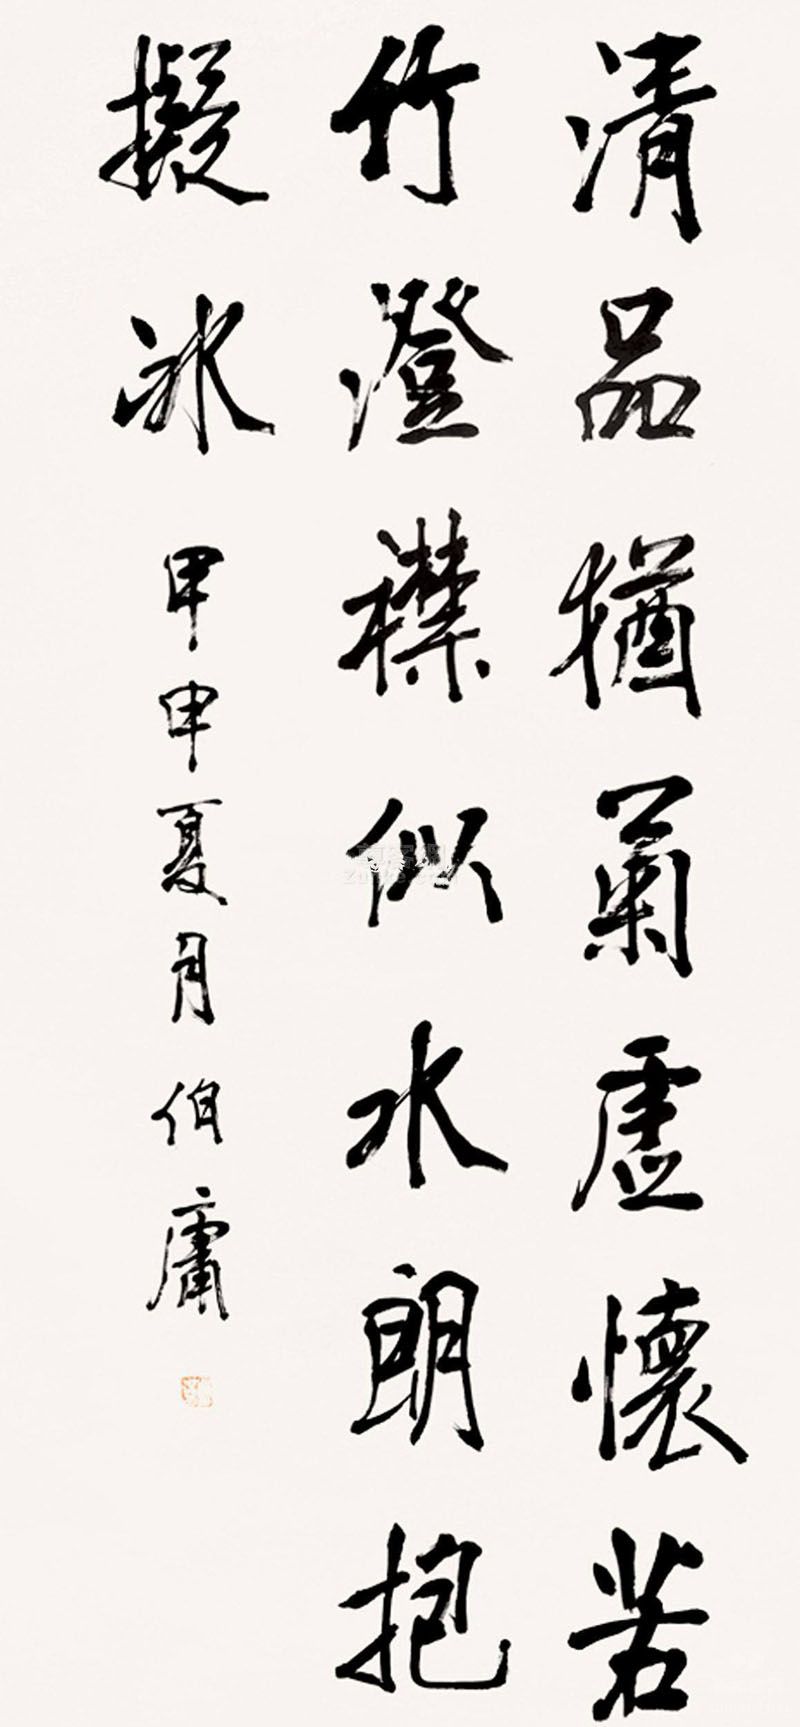 清品猶蘭虛懷若
竹澄襟似水朗抱
擬冰
甲申夏月伯庸